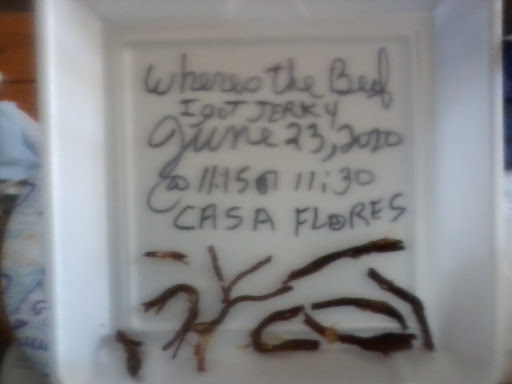 Wheres the Beef
I GOT JERKY
June 23, 2020
@ 11:15 11:30
CASA FLORES